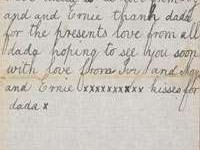 and and Ernie thank dada
for the presents love from all
dada hoping to see you soon
with love from Ivr and
and Ernie xxxxxxxxxx kisses for
dada x